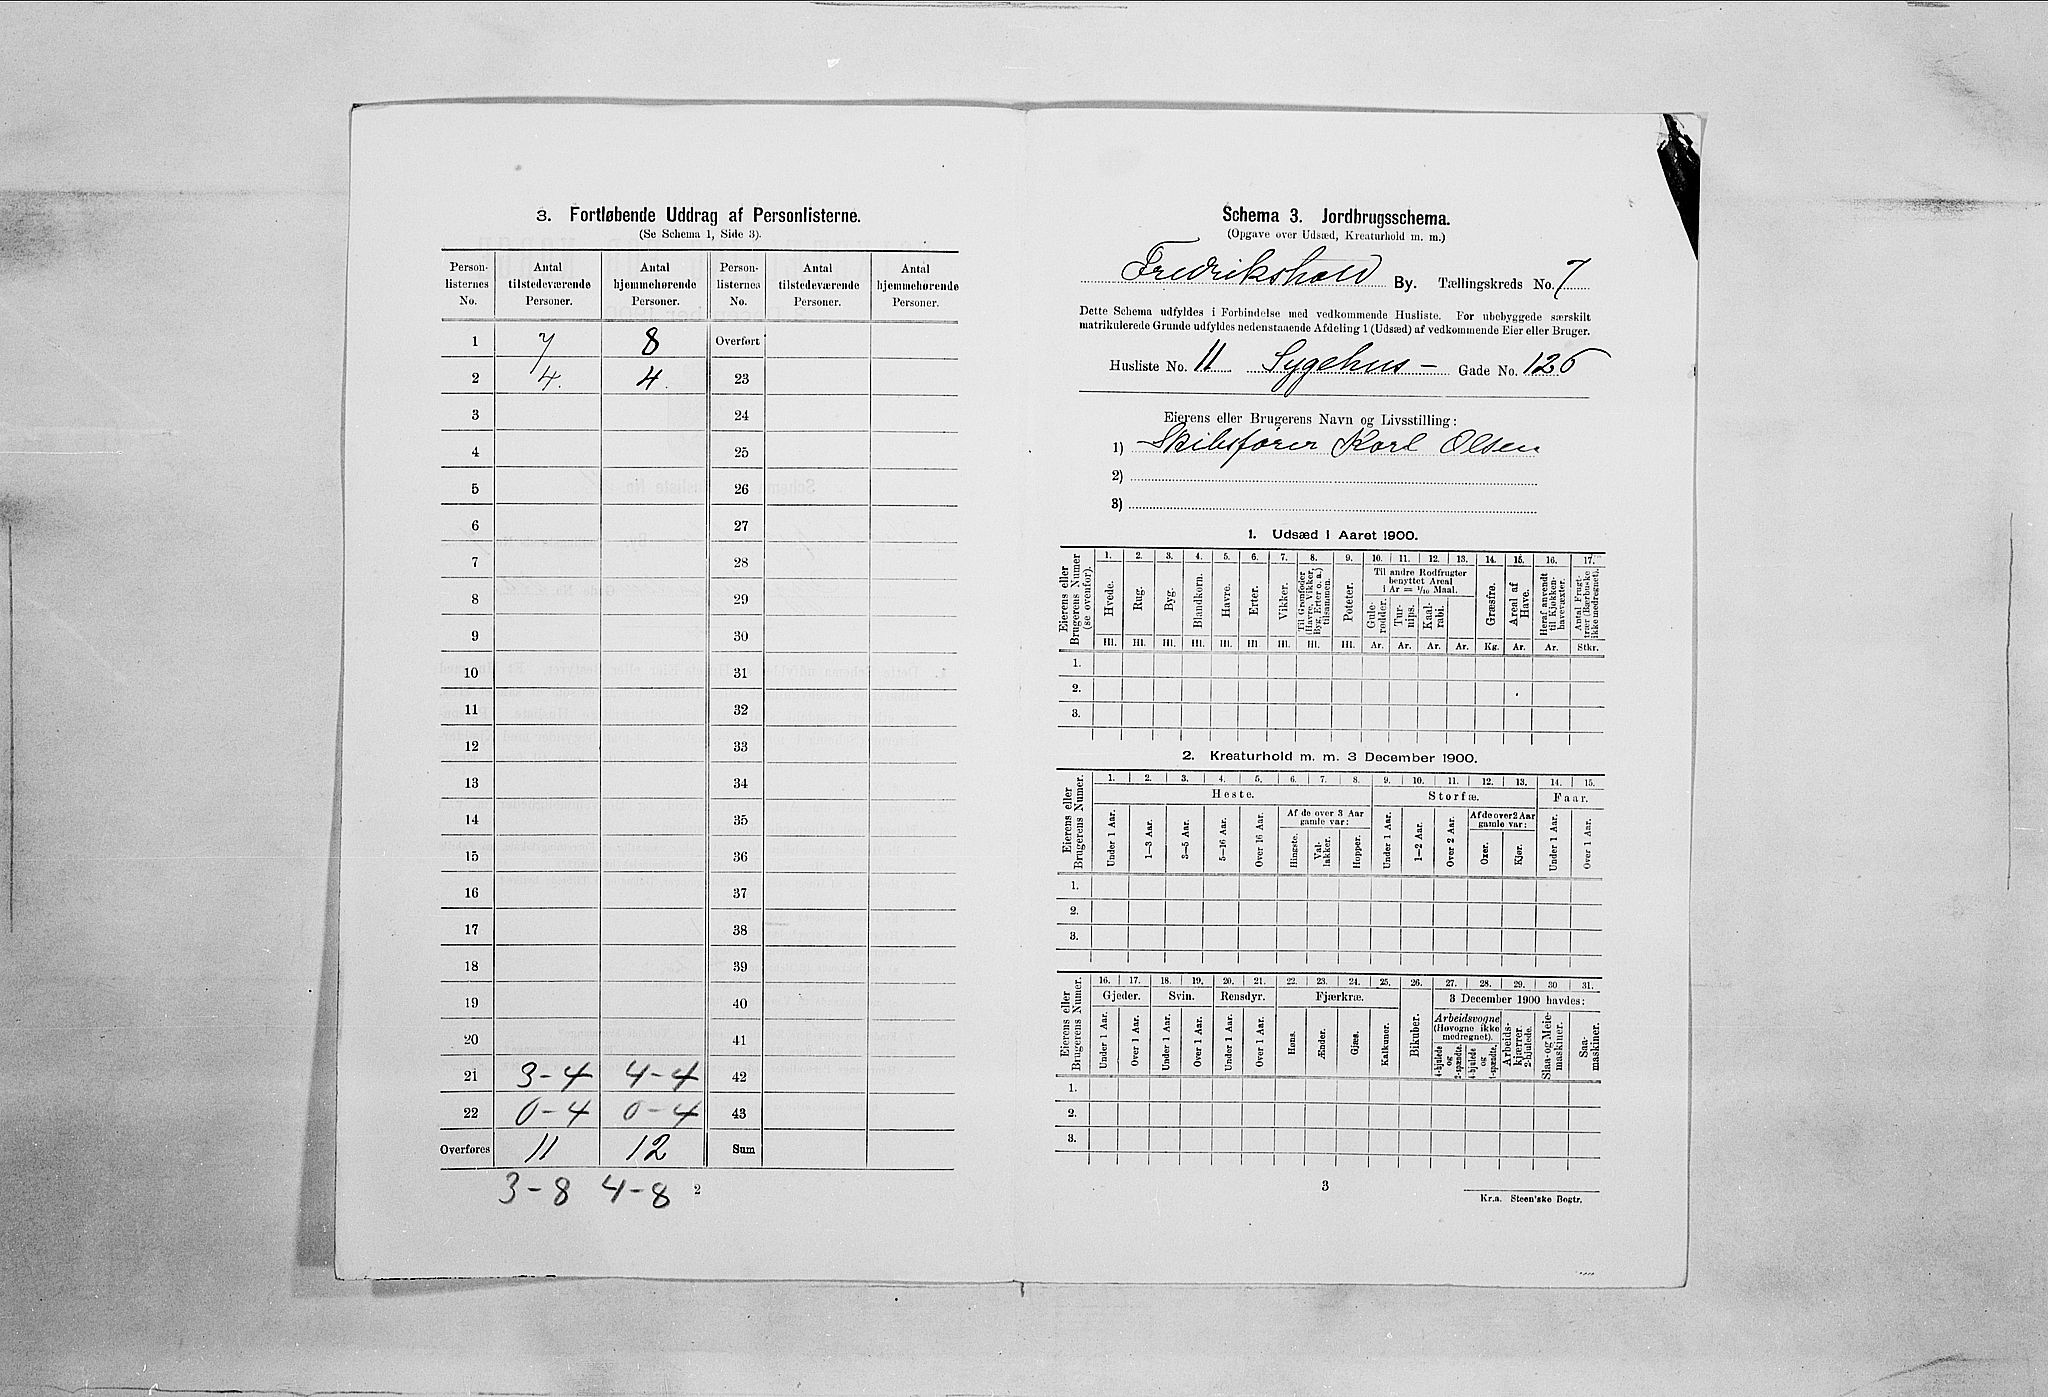 3. Fortløbende Uddrag af Personlisterne.
(Se Schema 1, Side 3).
Person-listernes No. Antal tilstedeværende Personer. Antal hjemmehørende Personer. Person-listernes No. Antal tilstedeværende Personer. Antal hjemmehørende Personer.
1 7 8 Overført
2 4. 4. 23
3 24
4 25
5 26
6 27
7 28
8 29
9 30
10 31
11 32
12 33
13 34
14 35
15 36
16 37
17 38
18 39
19 40
20 41
21 3-4 4-4 42
22 0-4 0-4 43
Overføres 11 12 Sum
3-8 4-8 2
Schema 3. Jordbrugsschema.
(Opgave over Udsæd, Kreaturhold m. m.)
Fredrikshald By. Tællingskreds No. 7
Dette Schema udfyldes i Forbindelse med vedkommende Husliste. For ubebyggede særskilt
matrikulerede Grunde udfyldes nedenstaaende Afdeling 1 (Udsæd) af vedkommende Eier eller Bruger.
Husliste No. 11 Sygehus- Gade No. 126
Eierens eller Brugerens Navn og Livsstilling:
1) Skibsfører Karl Olsen
2)
3)
1. Udsæd i Aaret 1900.
Eierens eller Brugerens Numer (se ovenfor).
1. 2. 3. 4. 5. 6. 7. 8. 9. 10. 11. 12. 13. 14. 15. 16. 17.
Hvede. Rug. Byg. Blandkorn. Havre. Erter. Vikker. Til Grønfoder (Havre, Vikker, Byg, Erter o. a.) tilsammen. Poteter.
Til andre Rodfrugter benyttet Areal i Ar = 1/10 Maal.
Gule-rødder. Tur-nips. Kaal-rabi. Græsfrø. Areal af Have. Heraf anvendt til Kjøkken-havevæxter. Antal Frugt-trær (Bærbuske ikke medregnet).
Hl. Hl. Hl. Hl. Hl. Hl Hl. Hl. Hl. Ar. Ar. Ar. Ar. Kg. Ar. Ar. Stkr.
1.
2.
3.
2. Kreaturhold m. m. 3 December 1900.
Eierens eller Brugerens Numer.
1. 2. 3. 4. 5. 6. 7. 8. 9. 10. 11. 12. 13. 14. 15.
Heste. Storfæ. Faar.
Af de over 3 Aar gamle var: Af de over 2 Aar gamle var:
Under 1 Aar. 1—3 Aar. 3—5 Aar. 5—16 Aar. Over 16 Aar. Hingste. Val-lakker. Hopper. Under 1 Aar. 1—2 Aar. Over 2 Aar. Oxer. Kjør. Under 1 Aar. Over 1 Aar.
1.
2.
3.
Eierens eller Brugerens Numer.
16. 17. 18. 19. 20. 21. 22. 23. 24. 25. 26. 27. 28. 29. 30 31.
Gjeder. Svin. Rensdyr. Fjærkræ. Bikuber. 3 December 1900 havdes:
Under 1 Aar. Over 1 Aar. Under 1 Aar. Over 1 Aar. Under 1 Aar. Over 1 Aar. Høns. Ænder. Gjæs. Kalkuner.
Arbeidsvogne (Høvogne ikke medregnet).
4-hjulede og 2-spændte. 4-hjulede og 1-spændte. Arbeids-kjærrer 2-hjulede. Slaa- og Meie-maskiner. Saa-maskiner.
1.
2.
3.
3
Kr.a. Steen'ske Bogtr.